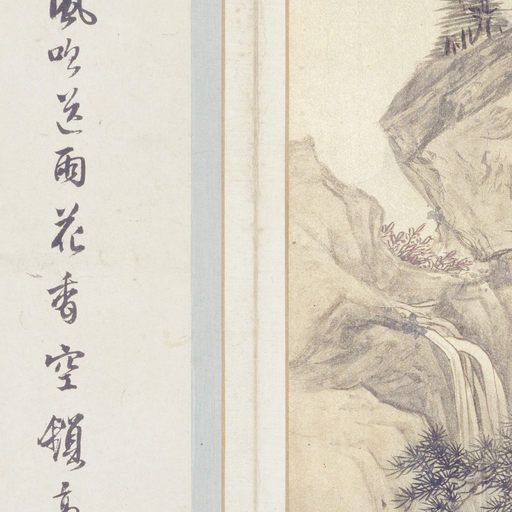 風吹送雨花香空鎖高